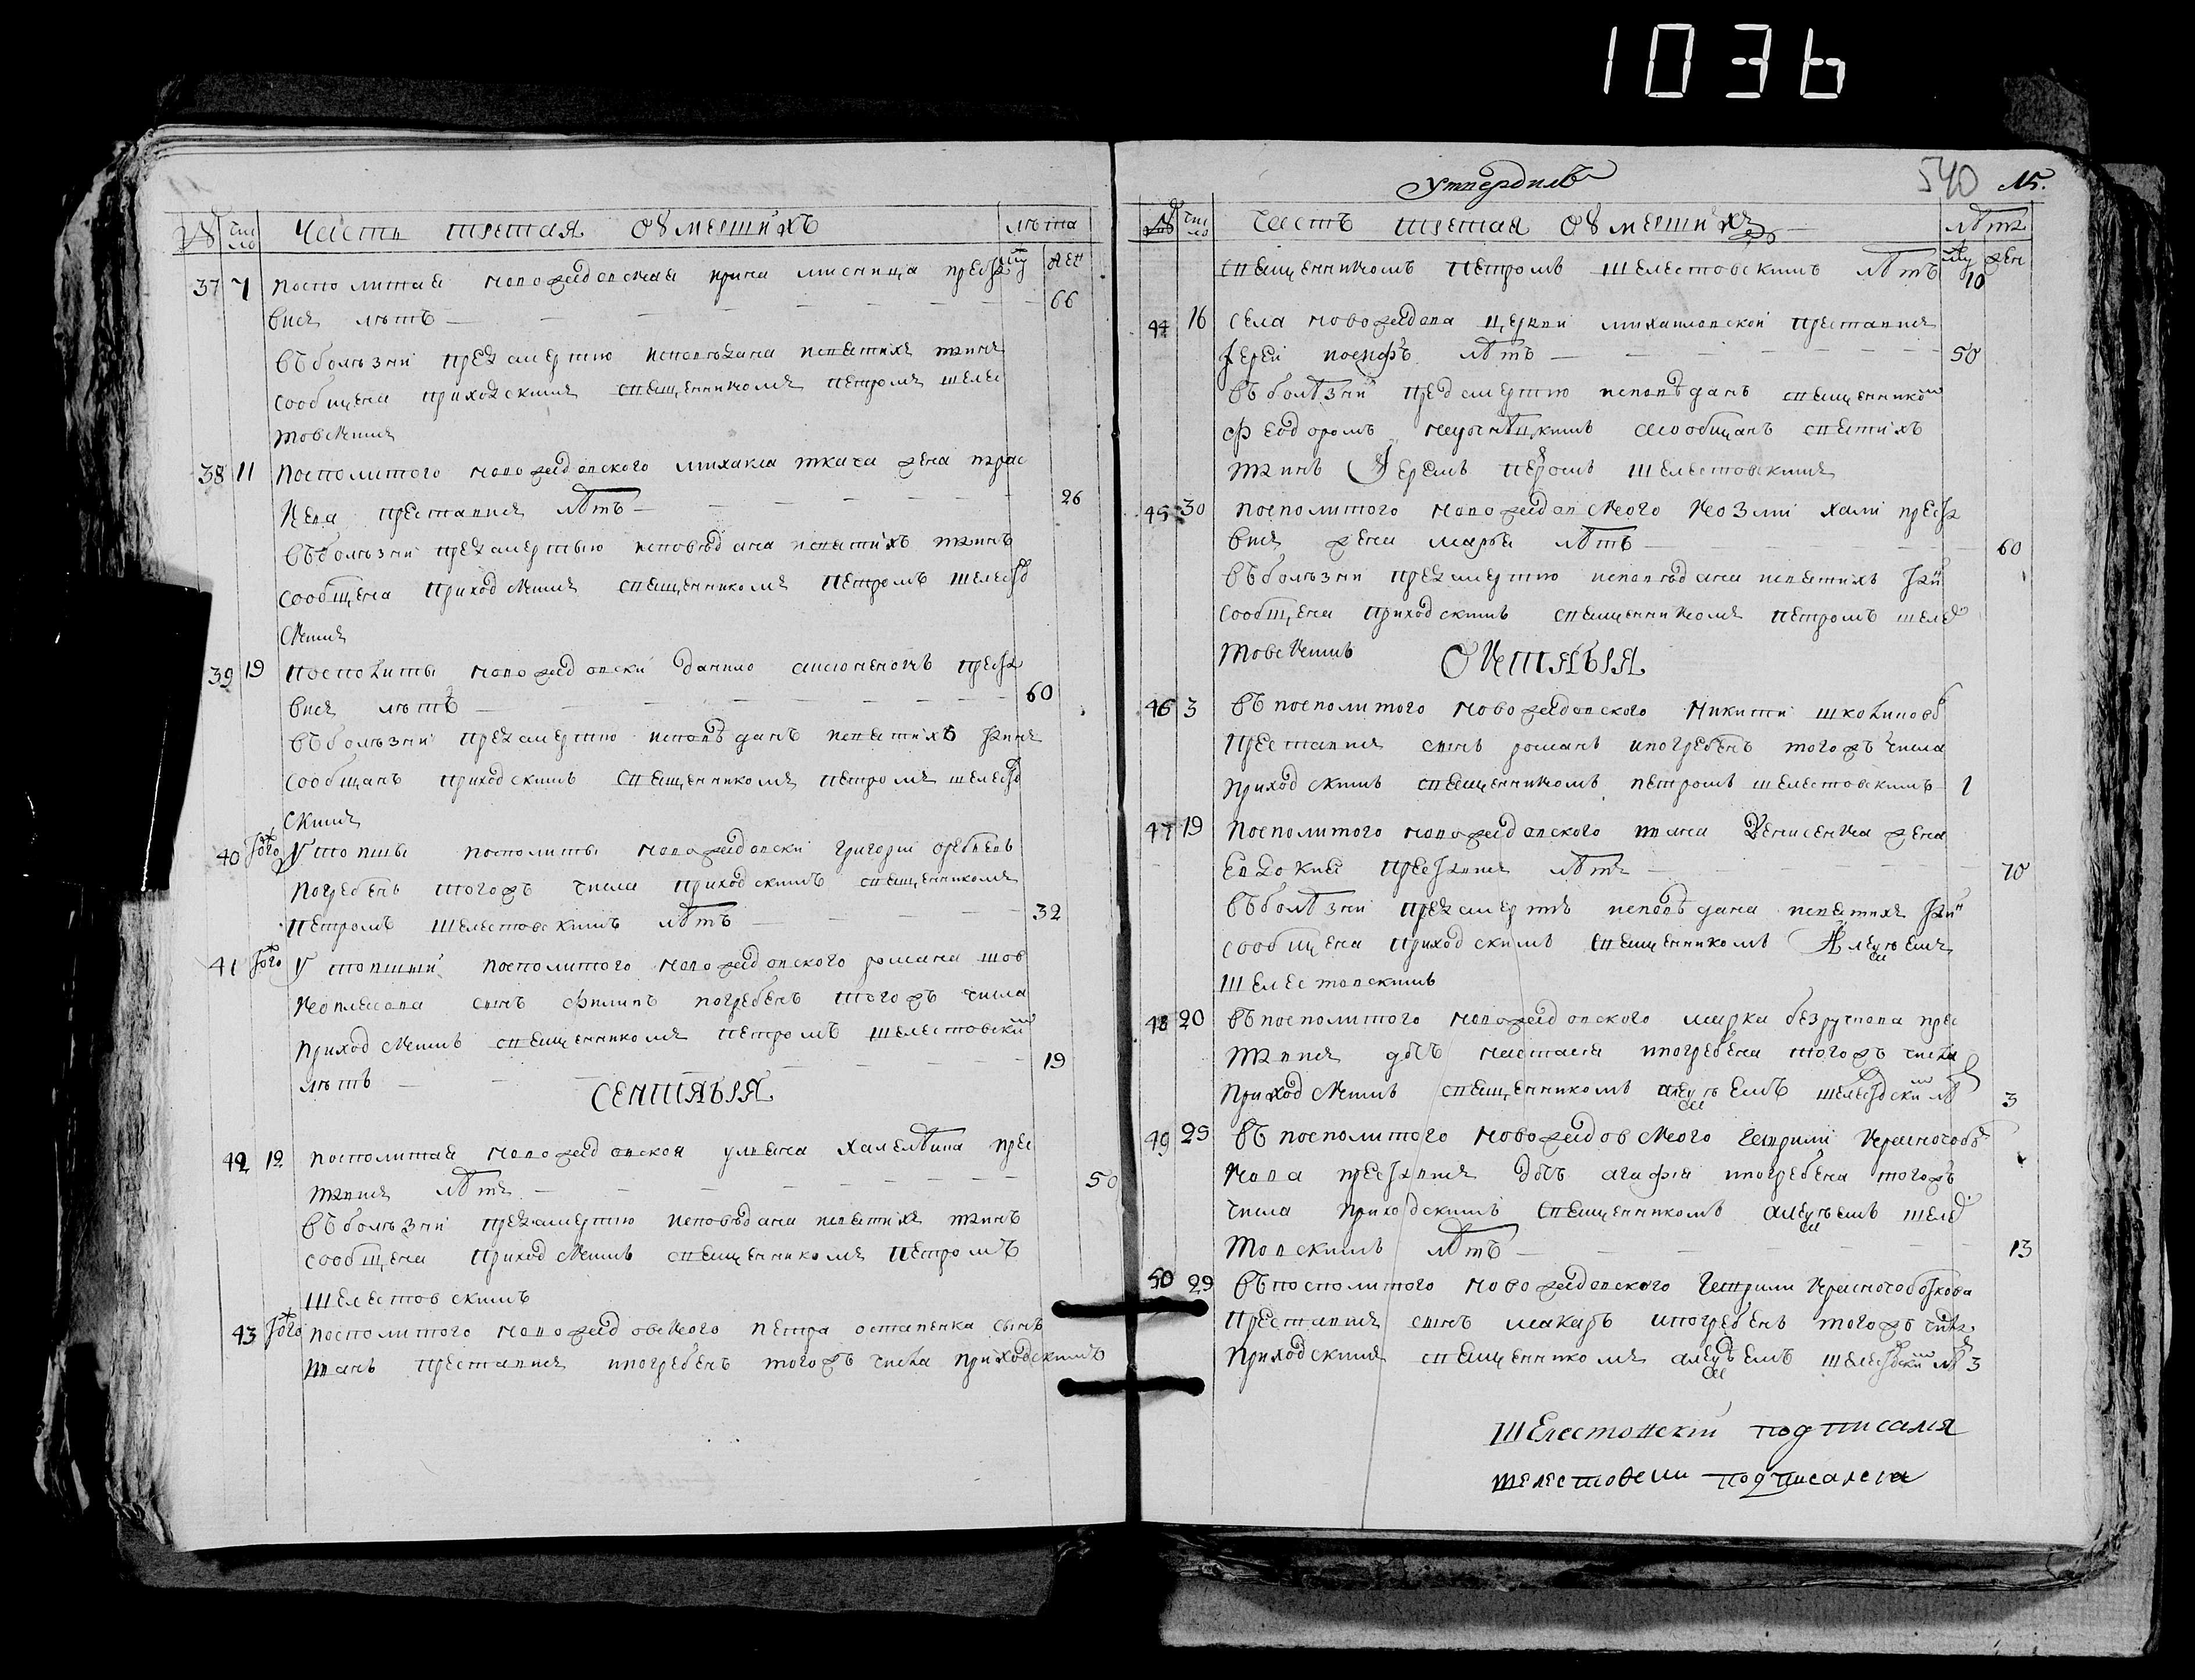 1036
№ число Часть третая о умерших лѣта
муж жен
37 7 посполитая моложадовская ирина мисница преста
вися лѣтъ 66
въ болѣзни предсмертию исповѣдана ис святих таинъ
сообщена приходским священником петром шелес
товским
38 11 посполитого моложадовского михаила ткача жена прас
кева преставися лѣтъ 26
въ болѣзни предсмертью исповѣдана и святихъ таинъ
сообщена приходским священником петромъ шелесто
вским
39 19 посполиты моложадовски данило преста
вися лѣтъ 60
въ болѣзни предсмертию исповѣданъ и святихъ таинъ
сообщанъ приходскимъ священником петром шелесто
скимъ
40 того У топшы посполиты моложадовски григорий
погребенъ тогожъ числа приходскимъ священником
петромъ шелестовскимъ лѣтъ 32
41 того У топший посполитого моложадовского романа шов
коплясова сынъ филипъ погребенъ тогожъ числа
приходским священником петромъ шелестовским
лѣтъ 19
СЕНТЯБРЯ
42 12 посполитая моложадовской уляна прес
тавися лѣтъ 50
въ болѣзни предсмертию исповѣдана и святихъ таинъ
сообщена приходским священником петромъ
шелестовскимъ
43 того посполитого моложадовского петра остапенка сынъ
иванъ преставися и погребенъ тогожъ числа приходскимъ
Утвердилъ
540 15.
№ число Часть третая о умерших лѣта
муж жен
священником петромъ шелестовскимъ лѣтъ 10
44 16 села моложадова церкви михаиловской преставися
иерей иосифъ лѣтъ 50
въ болѣзни предсмертию исповѣданъ священником
феодоромъ сообщанъ святихъ
таинъ иереемъ петромъ шелестовским
45 30 посполитого моложадовского козми хами преста
вися жена марфа лѣтъ 60
въ болѣзни предсмертию исповѣдана и святихъ таин
сообщена приходскимъ священником петромъ шелес
товскимъ
ОКТЯБРЯ
46 3 въ посполитого моложадовского никити
преставися сынъ романъ и погребенъ тогожъ числа
приходским священником петромъ шелестовскимъ 1
47 19 посполитого моложадовского ивана денисенка жена
евдокия преставися лѣтъ 70
въ болѣзни предсмертъ исповѣдана и святихъ таин
сообщена приходскимъ священником Алеѯѣемъ
шелестовскимъ
48 20 въ посполитого моложадовского марка безручкова прес
тавися дочъ настася и погребена тогожъ числа
приходским священником алеѯѣемъ шелестовским лѣ 3
49 29 въ посполитого моложадовского гаврили красноголо
кова преставися дочъ агафия и погребена тогожъ
числа приходскимъ священником алеѯѣемъ шелес
товскимъ лѣтъ 13
50 29 въ посполитого моложадовского гаврили
преставися сынъ макаръ и погребенъ тогожъ числа
приходским священником алеѯѣемъ шелестовским лѣ 3
Шелестовский подписался
шелестовски подписался